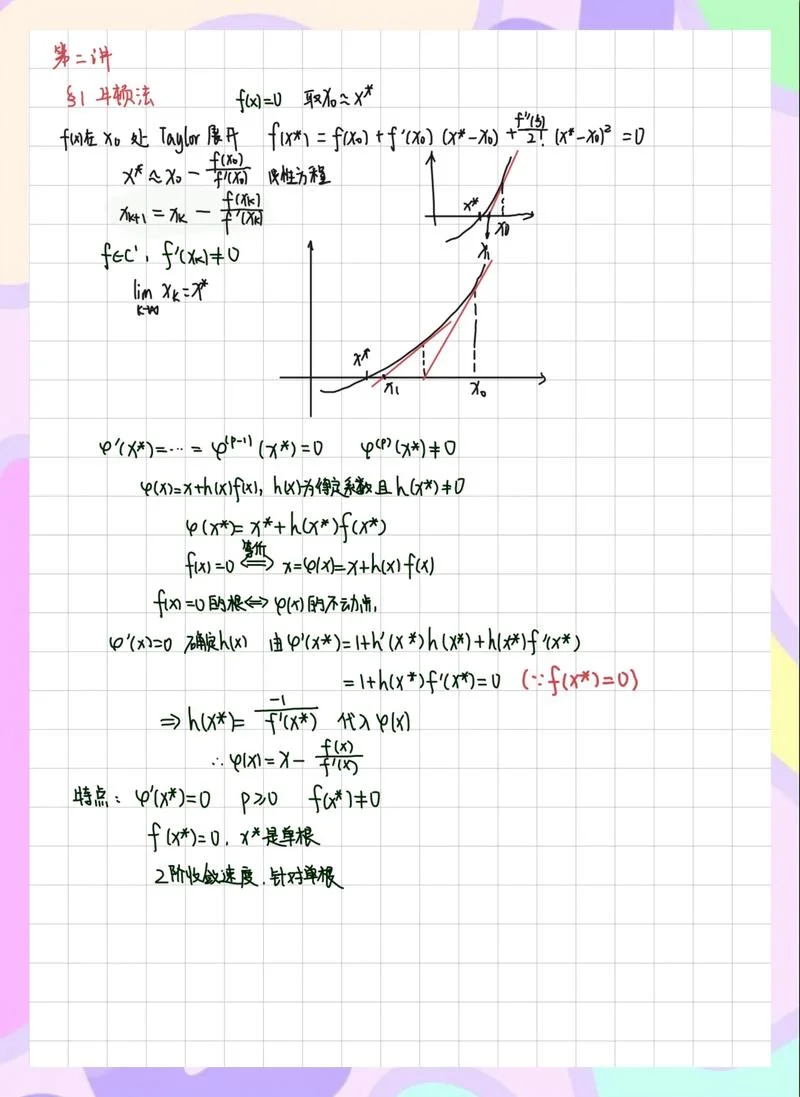 第二讲
§1 牛顿法
f(x)=0 取x₀≈x*
f(x)在 x₀ 处 Taylor 展开 f(x*) = f(x₀) + f'(x₀) (x*-x₀) + f''(ξ)/2! (x*-x₀)² = 0
x* ≈ x₀ - f(x₀)/f'(x₀) 线性方程
xₖ₊₁ = xₖ - f(xₖ)/f'(xₖ)
x* x₀
x₁
f∈C', f'(xₖ)≠0
lim k→∞ xₖ=x*
x* x₁ x₀
φ'(x*)=⋯= φ^(p-1)(x*)=0 φ^(p)(x*)≠0
φ(x)=x+h(x)f(x), h(x)为待定系数且h(x*)≠0
φ(x*)= x*+h(x*)f(x*)
f(x)=0 等价⟺ x=φ(x)=x+h(x)f(x)
f(x)=0的根⟺φ(x)的不动点,
φ'(x)=0 确定h(x) 由φ'(x*)=1+h'(x*)h(x*)+h(x*)f'(x*)
=1+h(x*)f'(x*)=0 (∵f(x*)=0)
⇒ h(x*)= -1/f'(x*) 代入φ(x)
∴φ(x)=x- f(x)/f'(x)
特点: φ'(x*)=0 p≥0 f(x*)≠0
f(x*)=0, x*是单根
2阶收敛速度,针对单根